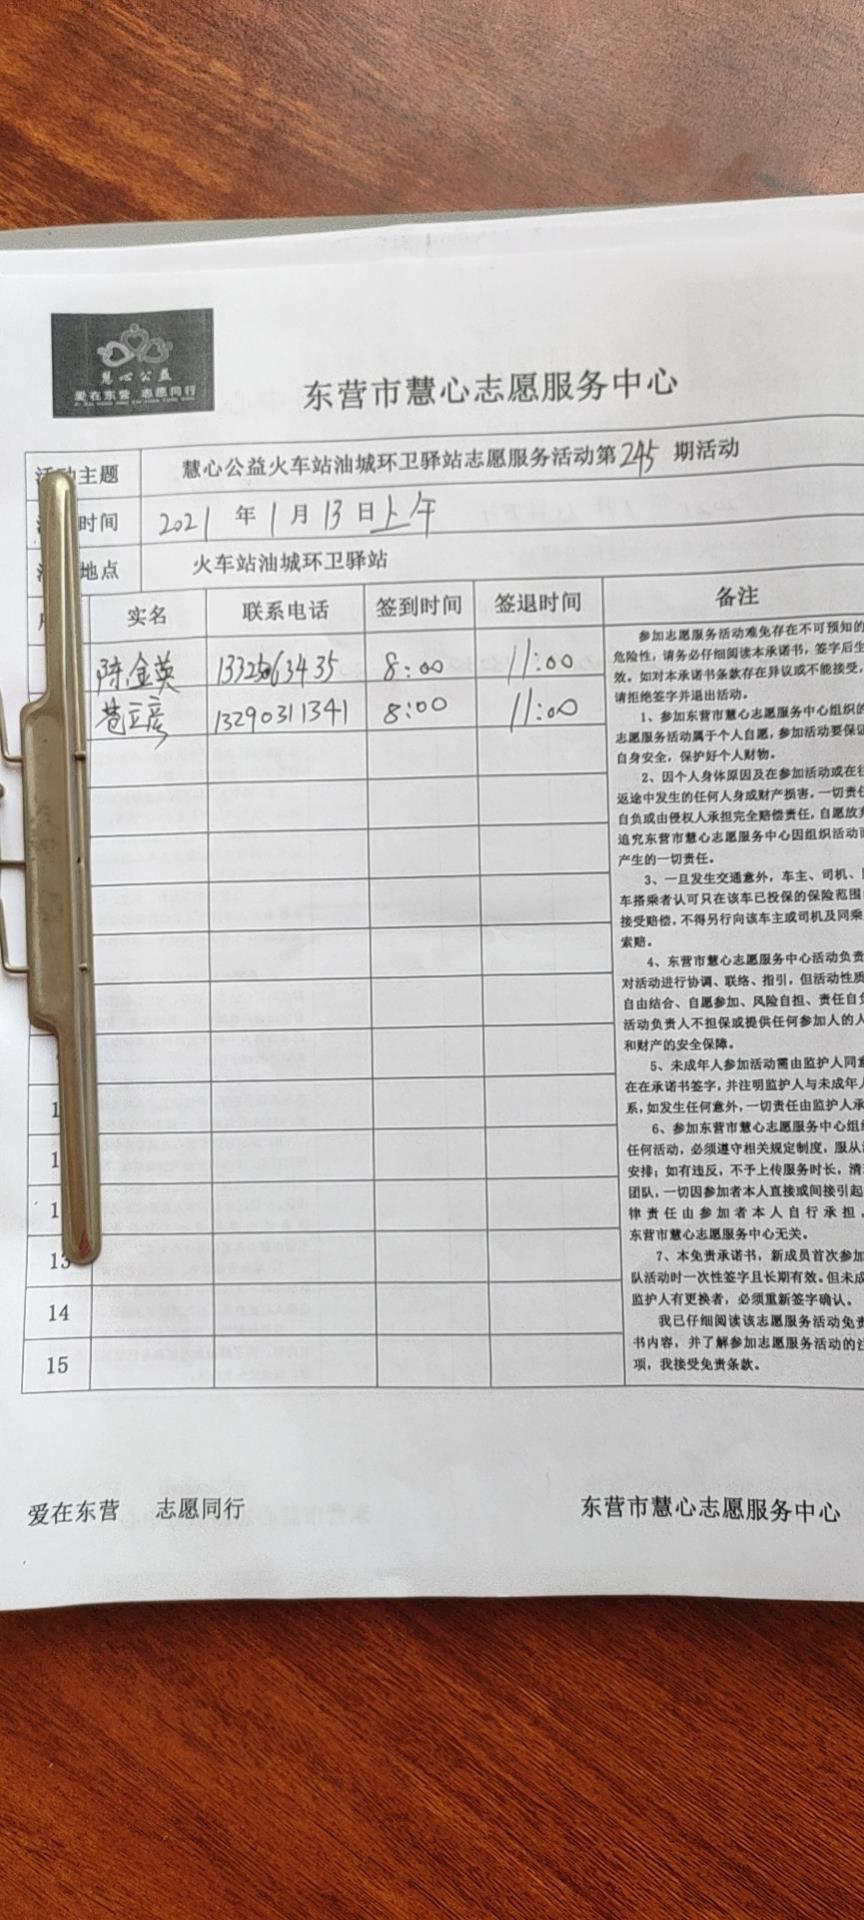 慧心公益
爱在东营 志愿同行
东营市慧心志愿服务中心
活动主题 慧心公益火车站油城环卫驿站志愿服务活动第245期活动
时间 2021年1月13日上午
地点 火车站油城环卫驿站
实名 联系电话 签到时间 签退时间 备注
陈金英 8:00 11:00
13290311341 8:00 11:00
参加志愿服务活动难免存在不可预知的
危险性，请务必仔细阅读本承诺书，签字后生
效。如对本承诺书条款存在异议或不能接受，
请拒绝签字并退出活动。
1、参加东营市慧心志愿服务中心组织的
志愿服务活动属于个人自愿，参加活动要保证
自身安全，保护好个人财物。
2、因个人身体原因及在参加活动或在往
返途中发生的任何人身或财产损害，一切责任
自负或由侵权人承担完全赔偿责任，自愿放弃
追究东营市慧心志愿服务中心因组织活动而
产生的一切责任。
3、一旦发生交通意外，车主、司机、
车搭乘者认可只在该车已投保的保险范围
接受赔偿，不得另行向该车主或司机及同乘
索赔。
4、东营市慧心志愿服务中心活动负责
对活动进行协调、联络、指引，但活动性质
自由结合、自愿参加、风险自担、责任自负
活动负责人不担保或提供任何参加人的人
和财产的安全保障。
5、未成年人参加活动需由监护人同意
在在承诺书签字，并注明监护人与未成年人
系，如发生任何意外，一切责任由监护人承
6、参加东营市慧心志愿服务中心组织
任何活动，必须遵守相关规定制度，服从
安排；如有违反，不予上传服务时长，清
团队，一切因参加者本人直接或间接引起
律责任由参加者本人自行承担，
东营市慧心志愿服务中心无关。
7、本免责承诺书，新成员首次参加
队活动时一次性签字且长期有效。但未成
监护人有更换者，必须重新签字确认。
我已仔细阅读该志愿服务活动免责
书内容，并了解参加志愿服务活动的注
项，我接受免责条款。
1
1
1
13
14
15
爱在东营 志愿同行
东营市慧心志愿服务中心